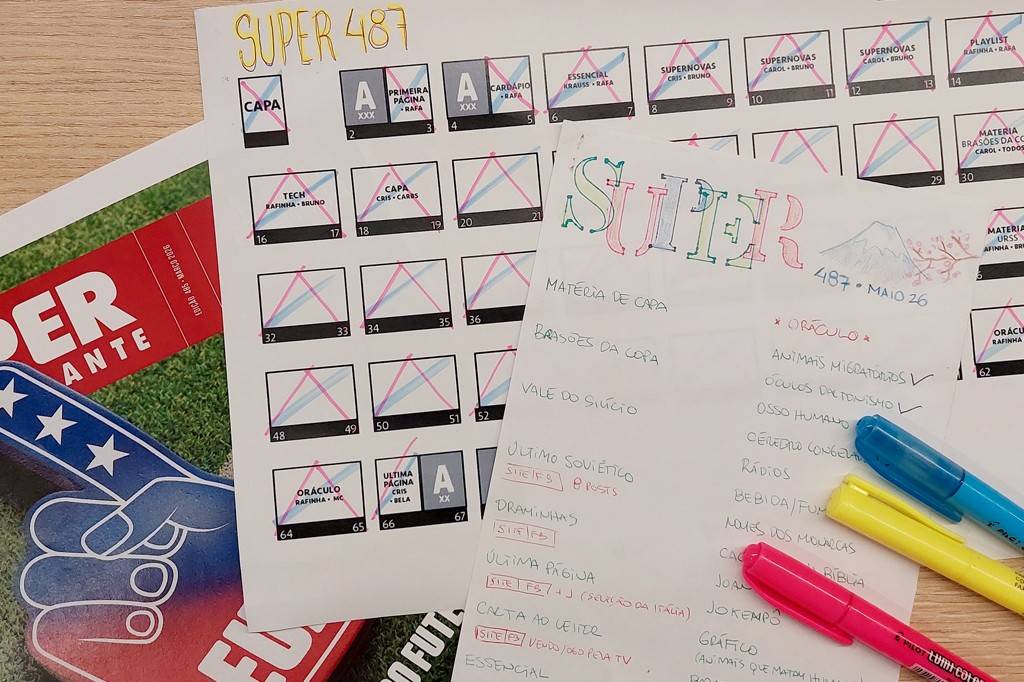 SUPER 487
CAPA
A
XXX
PRIMEIRA
PÁGINA
• RAFA
2 3
A
XXX
CARDÁPIO
• RAFA
4 5
ESSENCIAL
KRAUSS • RAFA
6 7
SUPERNOVAS
CRIS • BRUNO
8 9
SUPERNOVAS
CAROL • BRUNO
10 11
SUPERNOVAS
CAROL • BRUNO
12 13
PLAYLIST
RAFINHA • RAFA
14
TECH
RAFINHA • BRUNO
16 17
CAPA
CRIS • CARBS
18 19
20 21
29
MATERIA
BRASÕES DA CO
CAROL • TODOS
30
32 33
34 35
36
MATERIA
URSS
RAFINHA • BR
48 49
50 51
52
ORÁCU
RAFINHA
62
ORÁCULO
RAFINHA • MC
64 65
ULTIMA
PÁGINA
CRIS
• BELA
A
XX
66 67
PER
ANTE
EDIÇÃO 485 MARÇO 2026
O FUTE
SUPER
487 • MAIO 26
MATÉRIA DE CAPA
BRASÕES DA COPA
VALE DO SILÍCIO
ÚLTIMO SOVIÉTICO
SITE FB 8 POSTS
DRAMINHAS
SITE FB
ÚLTIMA PÁGINA
SITE FB / + J (SELEÇÃO DA ITÁLIA)
CARTA AO LEITOR
SITE FB VENDO/OGO PELA TV
ESSENCIAL
* ORÁCULO *
ANIMAIS MIGRATÓRIOS ✓
ÓCULOS DALTONISMO ✓
OSSO HUMANO
CÉREBRO CONGELA
RÁDIOS
BEBIDA/FUM
NOMES DOS MONARCAS
BÍBLIA
JOA
JOKEMPÔ
GRÁFICO
(ANIMAIS QUE MATAM HUMA
PILOT LUMI COLOR